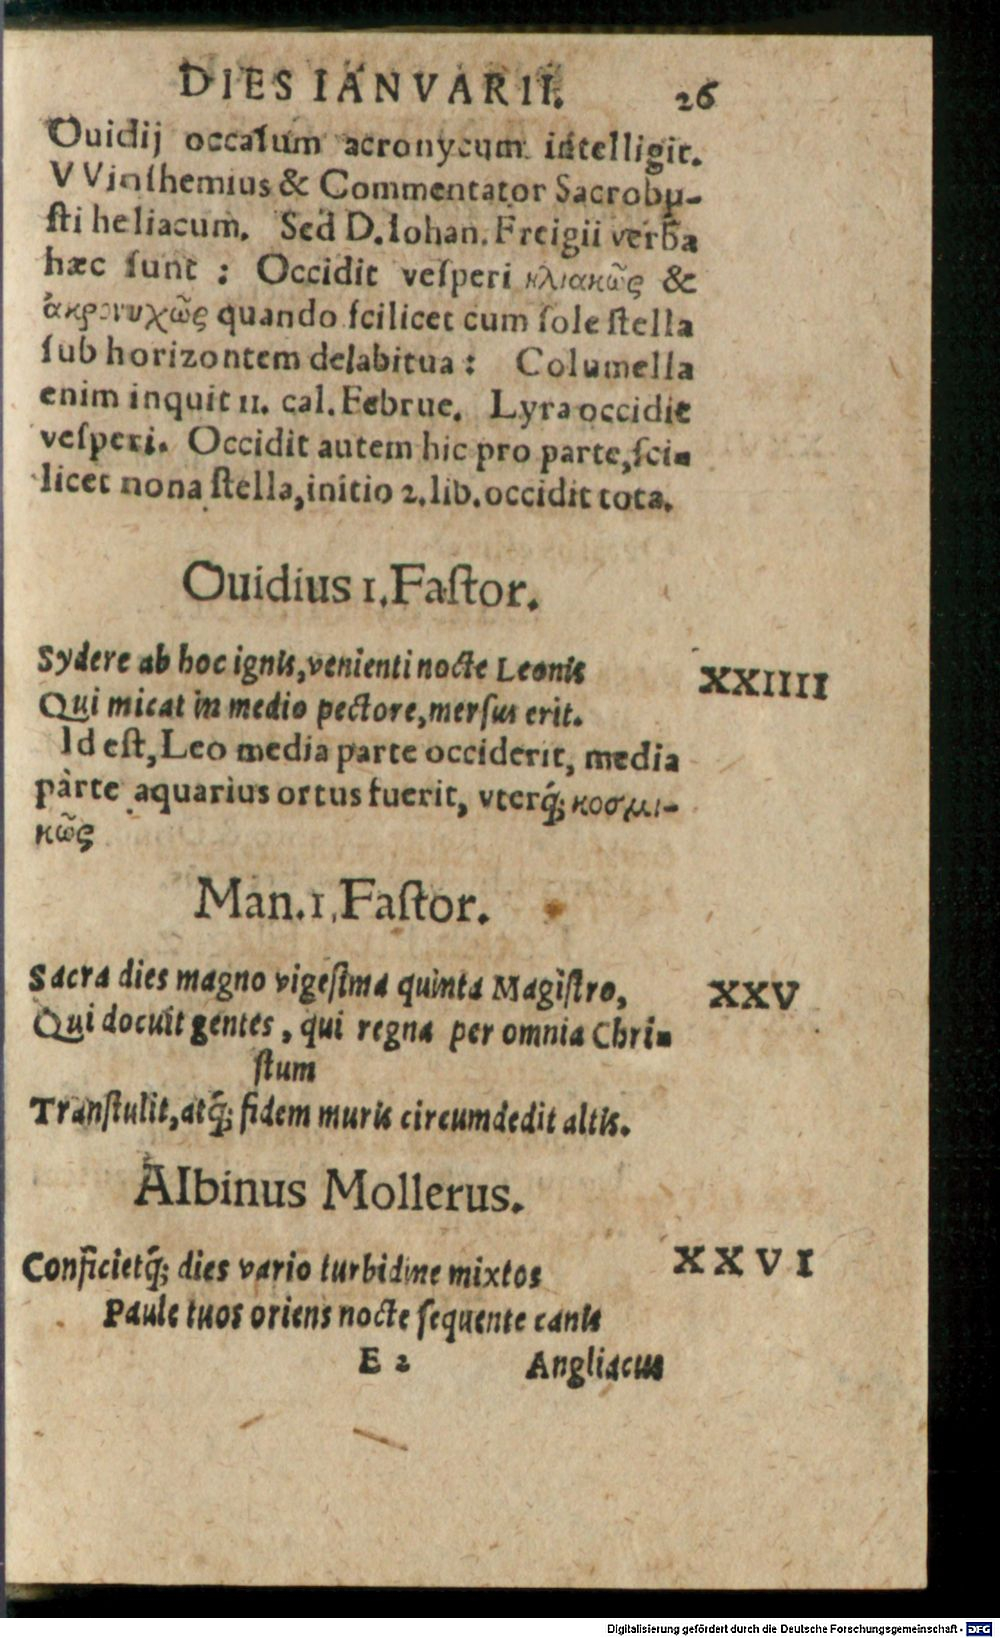 DIES IANVARII. 26
Ouidij occaſum acronycum intelligit.
VVinſhemius & Commentator Sacrobu-
ſti heliacum. Sed D. Iohan. Freigii verba
hæc ſunt : Occidit veſperi ηλιακῶς &
ἀκρονυχῶς quando ſcilicet cum ſole ſtella
ſub horizontem delabitua : Columella
enim inquit 11. cal. Februe. Lyra occidit
veſperi. Occidit autem hic pro parte, ſci-
licet nona ſtella, initio 2. lib. occidit tota.
Ouidius 1. Faſtor.
Sydere ab hoc ignis, venienti nocte Leonis XXIIII
Qui micat in medio pectore, merſus erit.
Id eſt, Leo media parte occiderit, media
parte aquarius ortus fuerit, vterq́; κοσμι-
κῶς
Man. 1. Faſtor.
Sacra dies magno vigeſima quinta Magiſtro, XXV
Qui docuit gentes, qui regna per omnia Chri-
ſtum
Tranſtulit, atq́; fidem muris circumdedit altis.
Albinus Mollerus.
Conficietq́; dies vario turbidine mixtos XXVI
Paule tuos oriens nocte ſequente canis
E 2 Angliacus
Digitalisierung gefördert durch die Deutsche Forschungsgemeinschaft - DFG